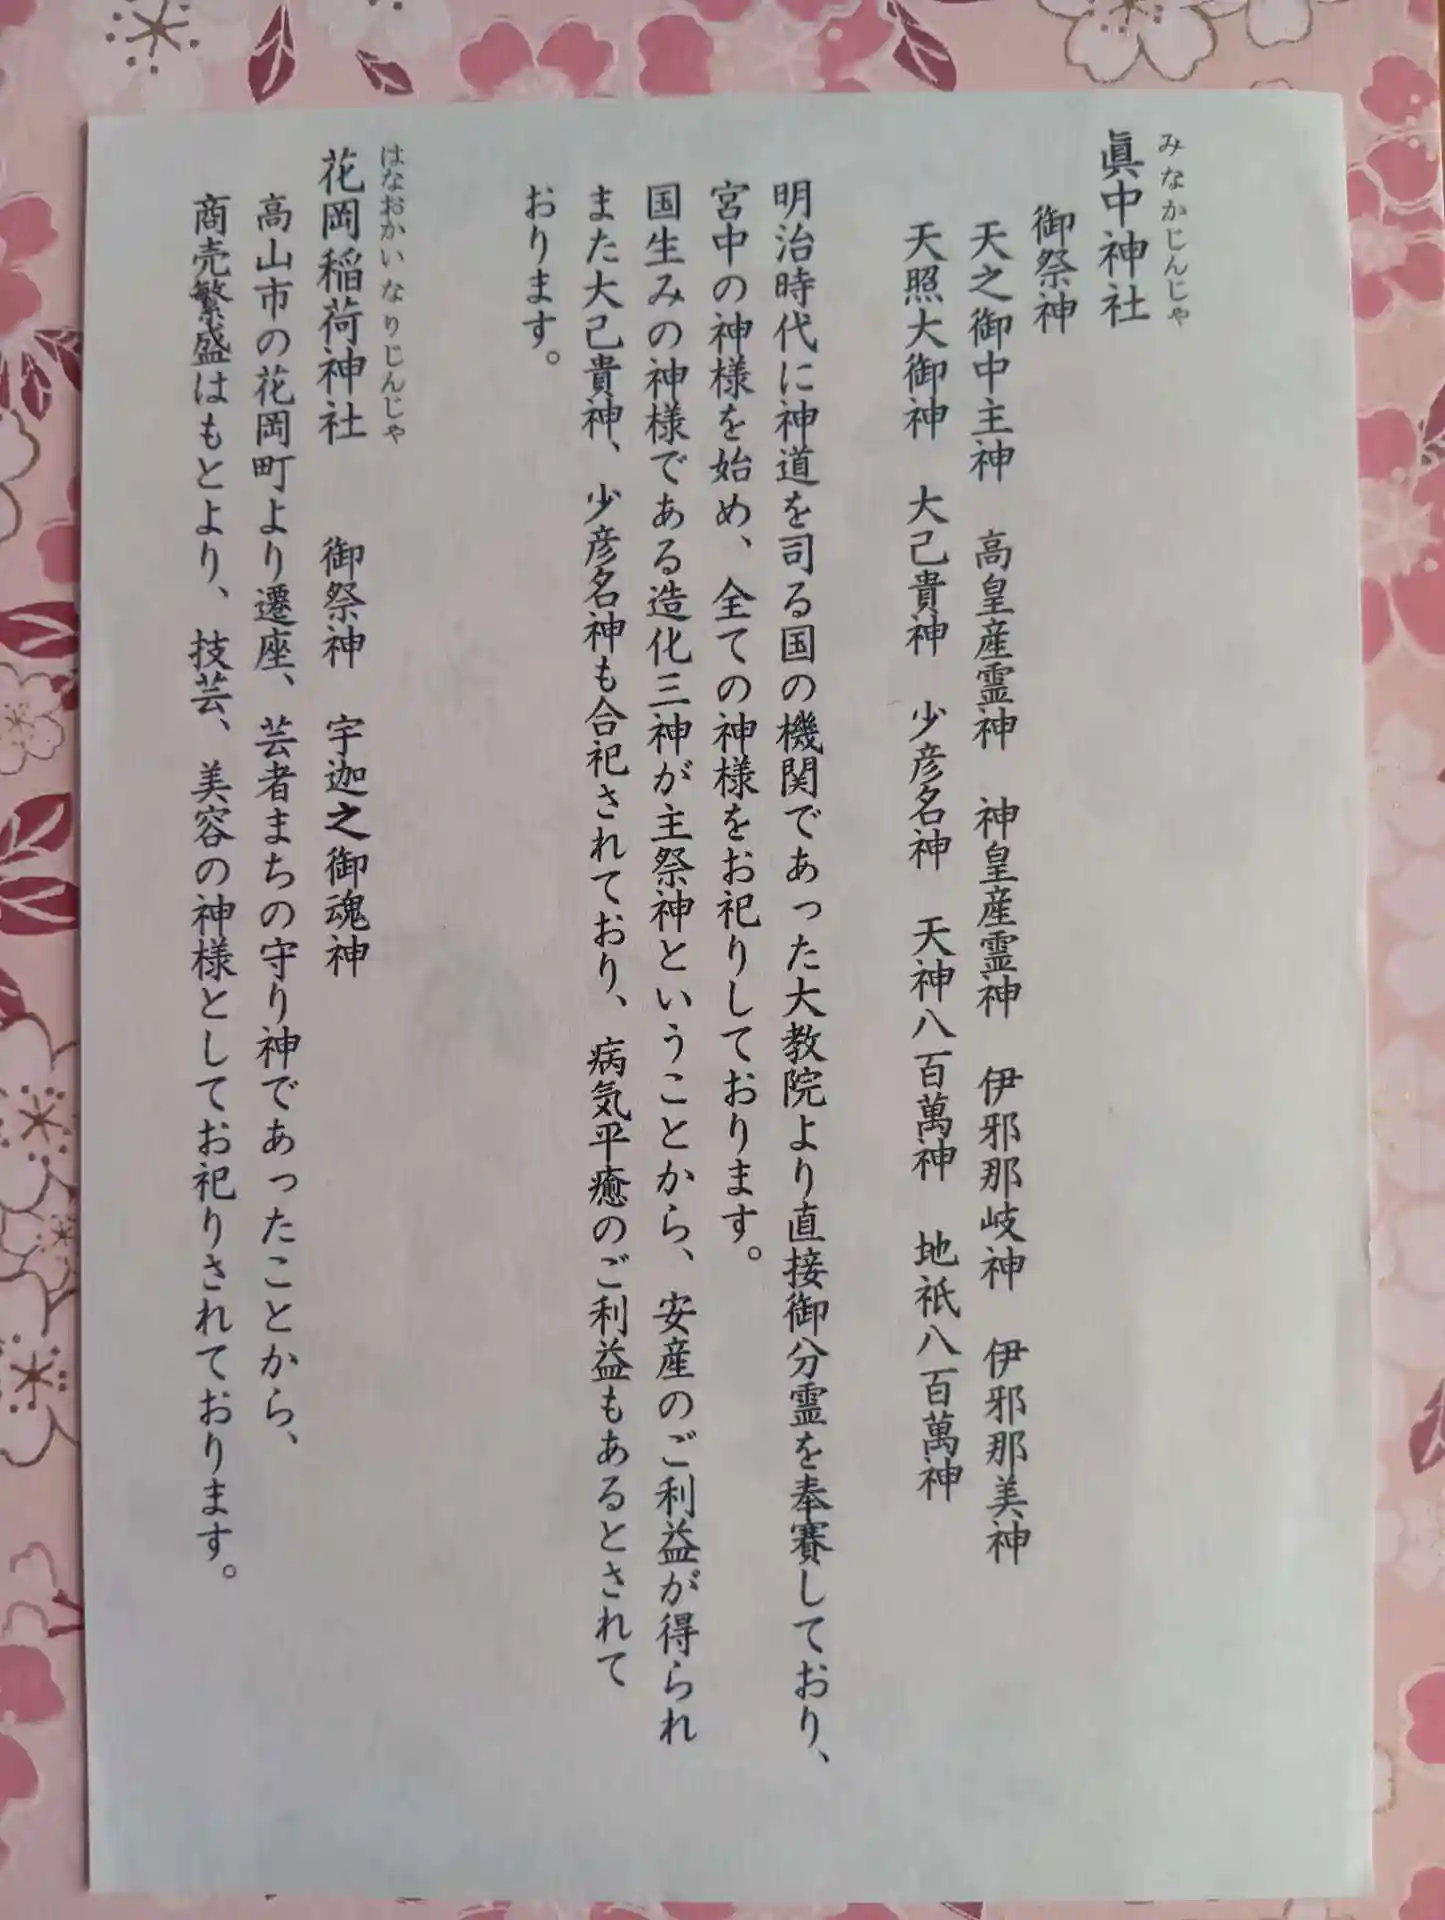 みなかじんじゃ
眞中神社
御祭神
天之御中主神　高皇産霊神　神皇産霊神　伊邪那岐神　伊邪那美神
天照大御神　大己貴神　少彦名神　天神八百萬神　地祇八百萬神
明治時代に神道を司る国の機関であった大教院より直接御分霊を奉賽しており、
宮中の神様を始め、全ての神様をお祀りしております。
国生みの神様である造化三神が主祭神ということから、安産のご利益が得られ
また大己貴神、少彦名神も合祀されており、病気平癒のご利益もあるとされて
おります。
はなおかいなりじんじゃ
花岡稲荷神社　御祭神　宇迦之御魂神
高山市の花岡町より遷座、芸者まちの守り神であったことから、
商売繁盛はもとより、技芸、美容の神様としてお祀りされております。